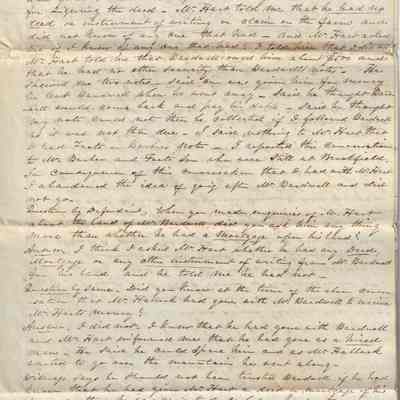 you signing the deed - Mr Hart told me that he had no
deed or instrument of writing or claim on the farm and
did not know of any one that had - And Mr Hart asked
me if I knew of any one that had & I told him that I did not
Mr Hart told me that Bardwell owed him about $
that he had no other security than Bardwells note - He
showed me the note, said it was given for money
he lent Bardwell when he went away - Said he thought Bard
well would come back and pay his debts - Said he thought
my note could not then be collected if I followed Bardwell
as it was not then due - I said nothing to Mr Hart that
I had note - I reported this conversation
to Mr and Son who were still at Brookfield.
In consequence of this conversation that I had with Mr Hart
I abandoned the idea of going after Mr Bardwell and did
not go.
Question by Defendant, When you made enquiries of Mr Hart
about the land of Mr Bardwell did you ask him any thing
more than whether he had a Mortgage upon his land?
Answer, I think I asked Mr Hart whether he had any Deed,
Mortgage or any other instrument of writing from Mr Bardwell
for his land and he told me he had not -
Question by same. Did you know at the time of the above conver
sation that Mr Hallock had gone with Mr Bardwell to
Mr Harts money?
Answer, I did not, I knew that he had gone with Bardwell
and Mr Hart informed me that he had gone as a hired
man - He said he could spare him and as Mr Hallock
wanted to go over the mountains he went along -
Witness says he should not have trusted Bardwell if he had
known that he had given Mr Hart a deed or mortgage of his